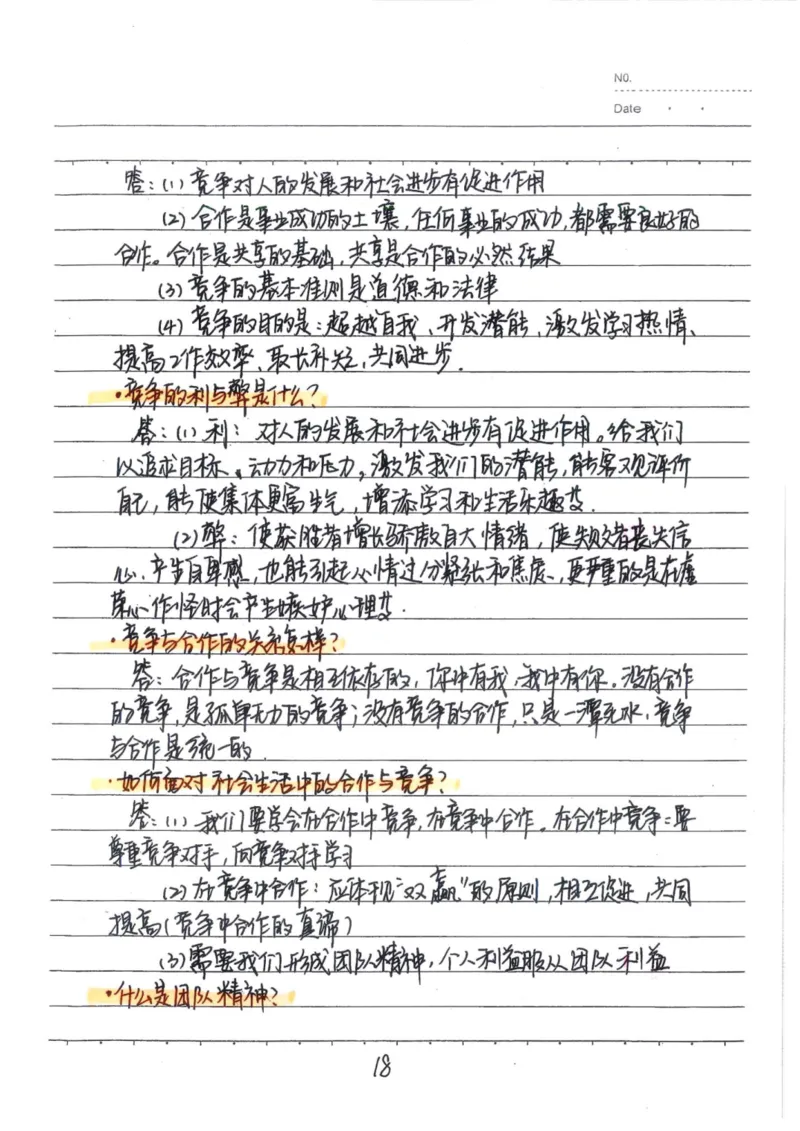 NO.
Date
答：(1) 竞争对人的发展和社会进步有促进作用
(2) 合作是事业成功的土壤，任何事业的成功，都需要良好的
合作。合作是共享的基础，共享是合作的必然结果
(3) 竞争的基本准则是道德和法律
(4) 竞争的目的是：超越自我、开发潜能，激发学习热情、
提高工作效率、取长补短，共同进步.
·竞争的利与弊是什么？
答：(1) 利：对人的发展和社会进步有促进作用。给我们
以追求目标、动力和压力，激发我们的潜能，能客观评价
自己，能使集体更富生气，增添学习和生活乐趣等.
(2) 弊：使获胜者增长骄傲自大情绪，使失败者丧失信
心、产生自卑感，也能引起心情过分紧张和焦虑、更严重的是在虚
荣心作怪时会产生嫉妒心理等.
·竞争与合作的关系怎样？
答：合作与竞争是相互依存的，你中有我，我中有你。没有合作
的竞争，是孤单无力的竞争；没有竞争的合作，只是一潭死水，竞争
与合作是统一的.
·如何面对社会生活中的合作与竞争？
答：(1) 我们要学会在合作中竞争，在竞争中合作。在合作中竞争：要
尊重竞争对手，向竞争对手学习
(2) 在竞争中合作：应体现“双赢”的原则，相互促进，共同
提高(竞争中合作的真谛)
(3) 需要我们形成团队精神，个人利益服从团队利益
·什么是团队精神？
18